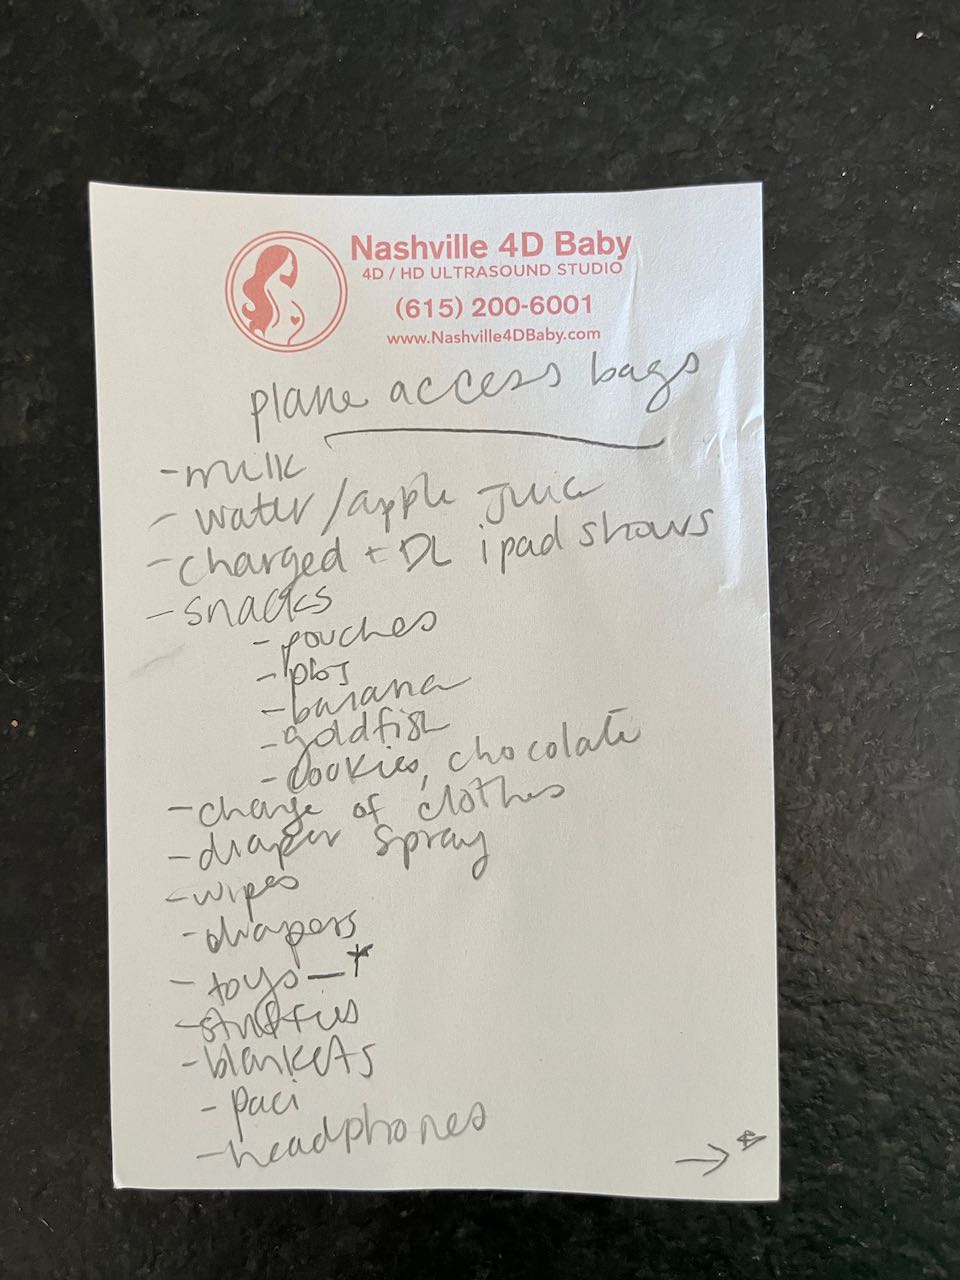 Nashville 4D Baby
4D / HD ULTRASOUND STUDIO
(615) 200-6001
www.Nashville4DBaby.com
plane access bags
- milk
- water/apple juice
- charged + DL ipad shows
- snacks
- pouches
- pbj
- banana
- goldfish
- cookies, chocolate
- change of clothes
- diaper spray
- wipes
- diapers
- toys — *
- stuffies
- blankets
- paci
- headphones
→ *